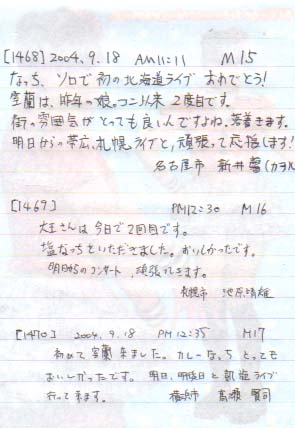 [1468] 2004.9.18 AM11:11 M15
なっち、ソロで初の北海道ライブおめでとう!
室蘭は、昨年の娘。コン以来2度目です。
街の雰囲気がとっても良いんですよね。落着きます。
明日からの帯広、札幌ライブと、頑張って応援します!
名古屋市 新井馨(カヲル
[1469] PM12:30 M16
大王さんは今日で2回目です。
塩なっちをいただきました。おいしかったです。
明日からのコンサート、頑張ってきます。
札幌市 池原晴雄
[1470] 2004.9.18 PM12:35 M17
初めて室蘭来ました。カレーなっち とっても
おいしかったです。明日、明後日と凱旋ライブ
行って来ます。 横浜市 高瀬 賢司